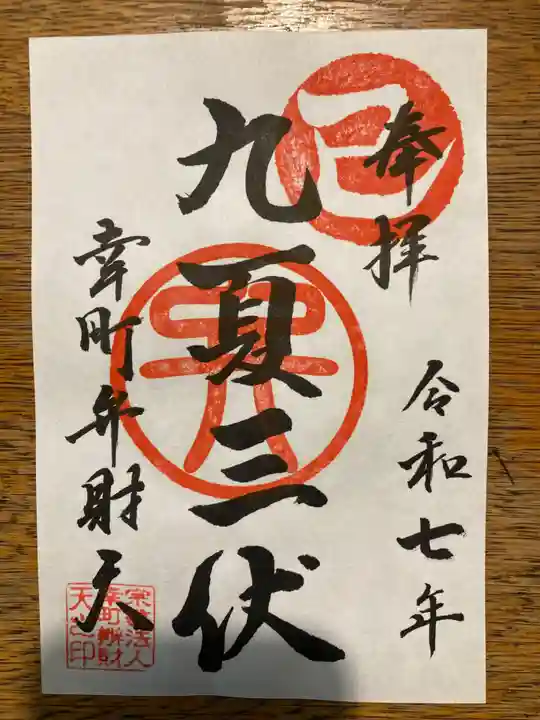 奉拝
令和七年
九夏三伏
幸町弁財天
宗教法人
幸町辨財
天之印